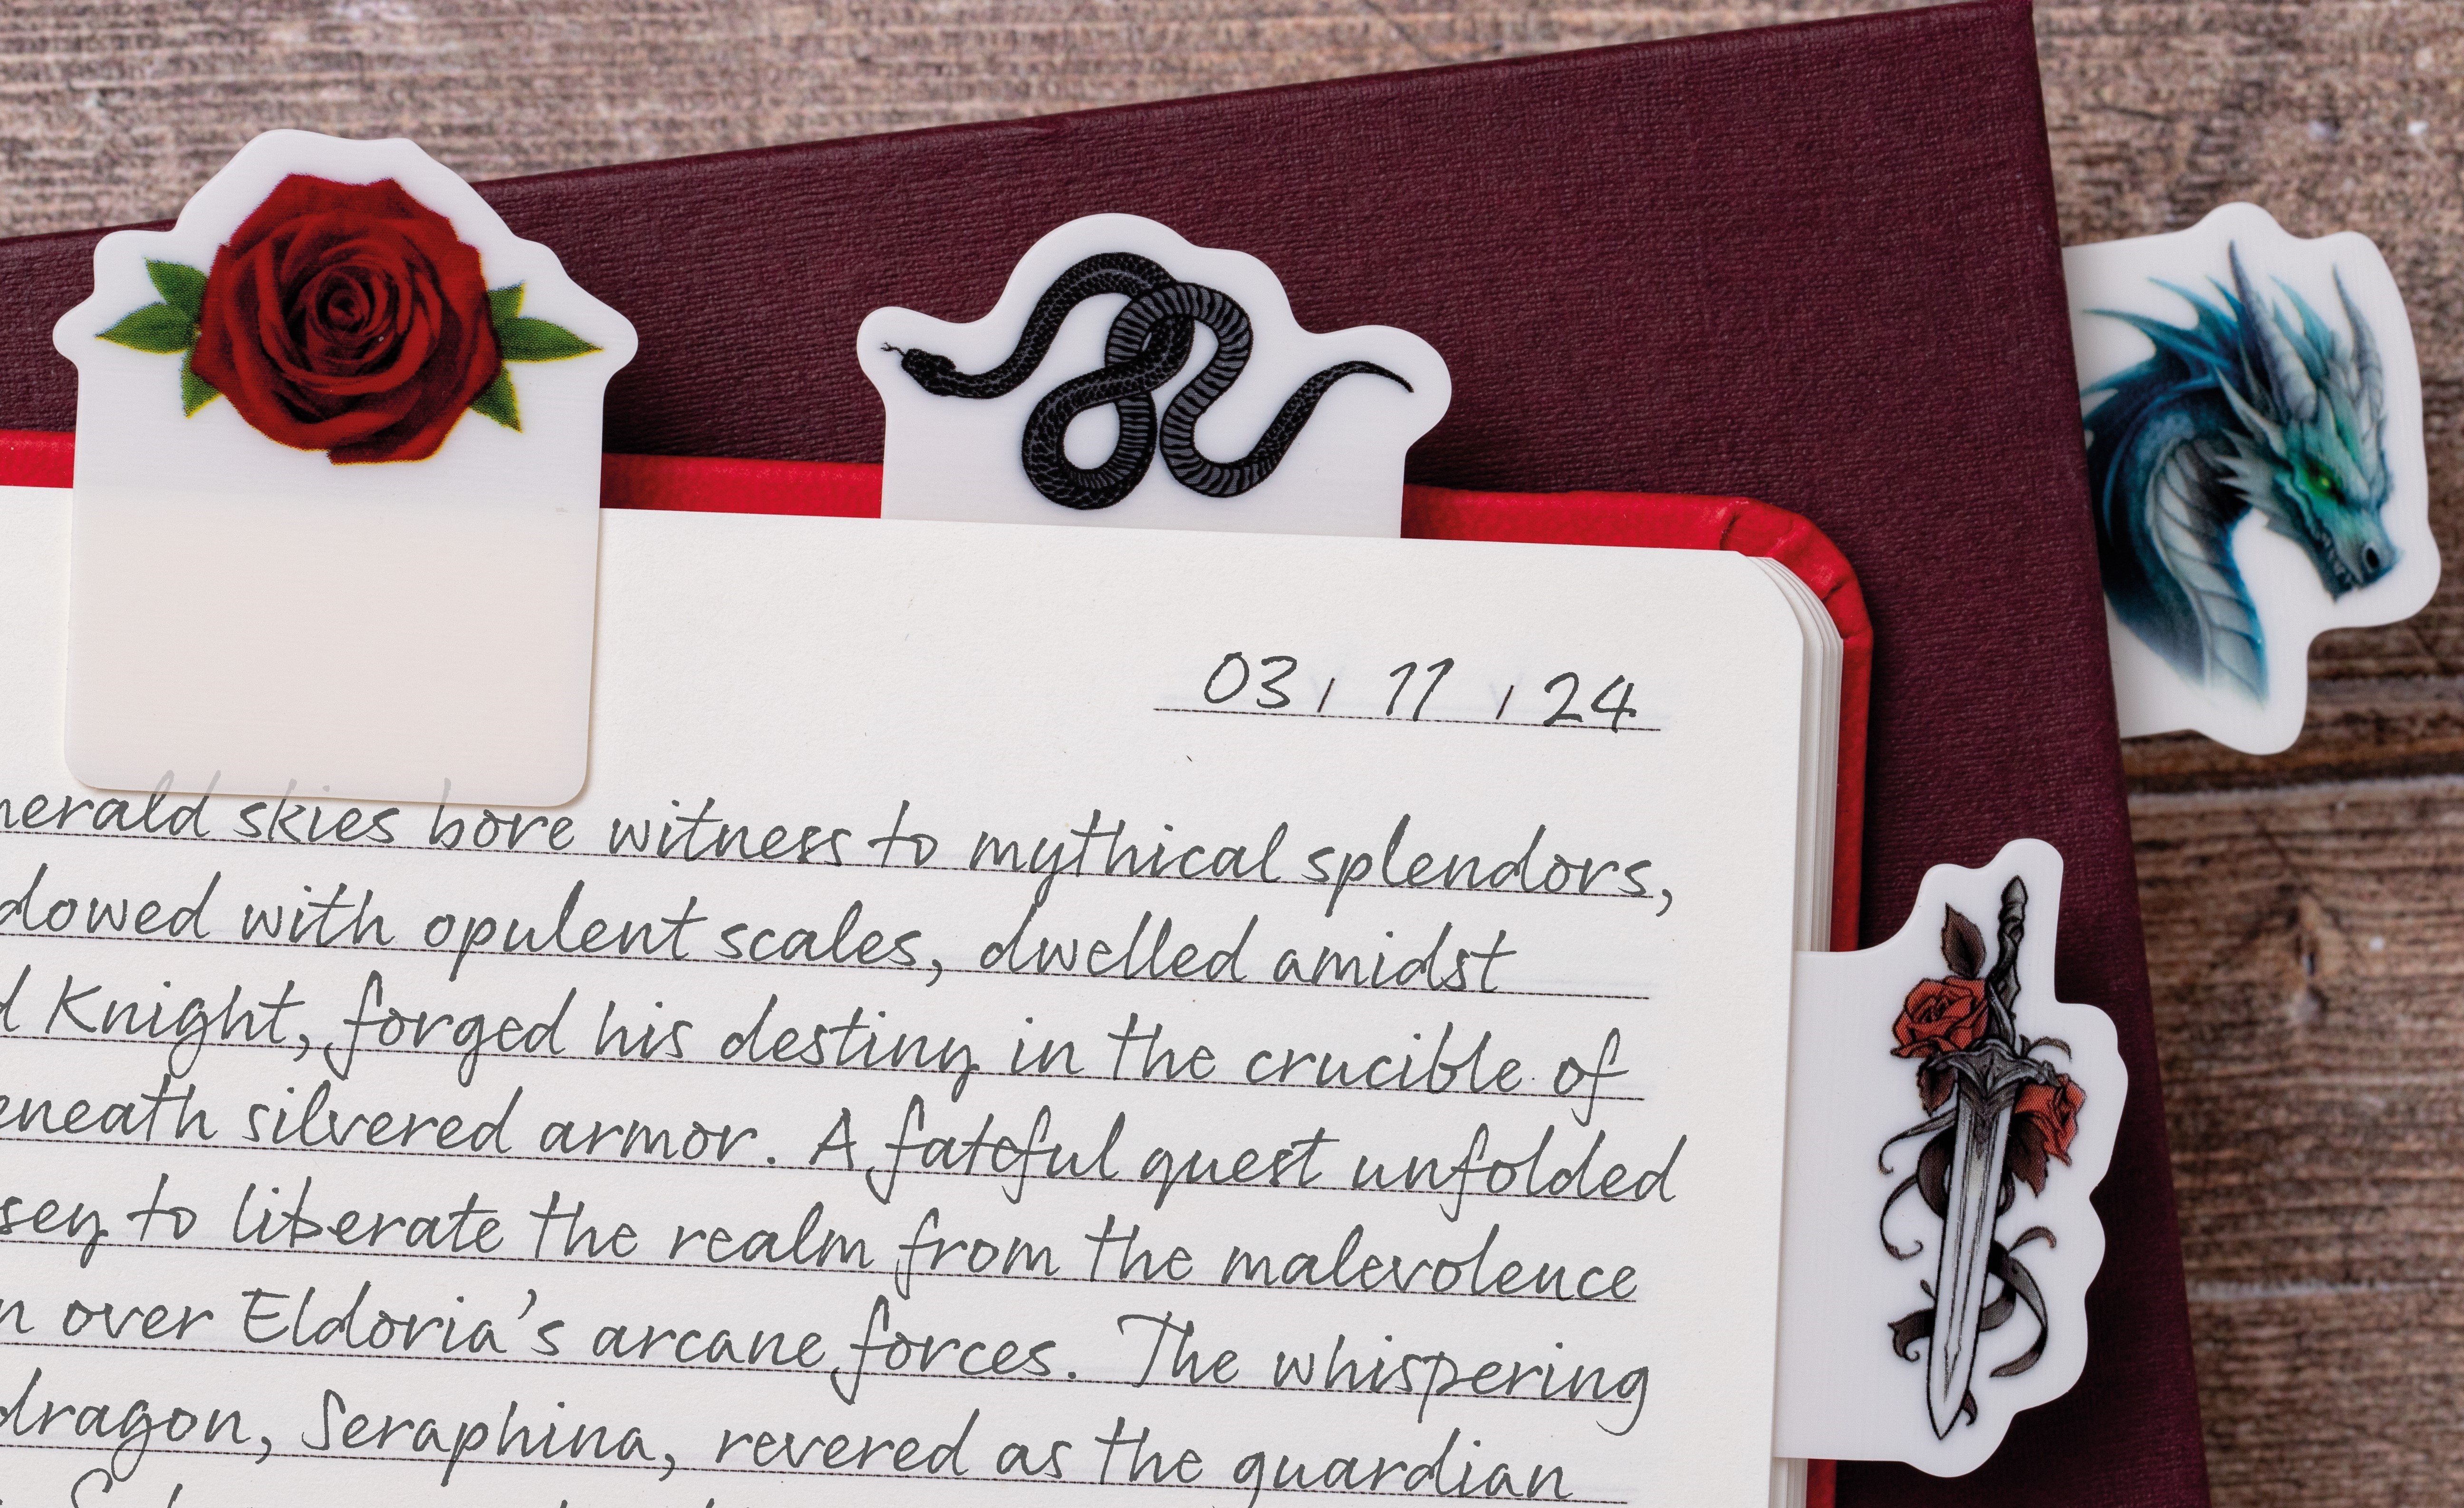 03 / 11 / 24
merald skies bore witness to mythical splendors,
dowed with opulent scales, dwelled amidst
d Knight, forged his destiny in the crucible of
eneath silvered armor. A fateful quest unfolded
sey to liberate the realm from the malevolence
n over Eldoria's arcane forces. The whispering
dragon, Seraphina, revered as the guardian